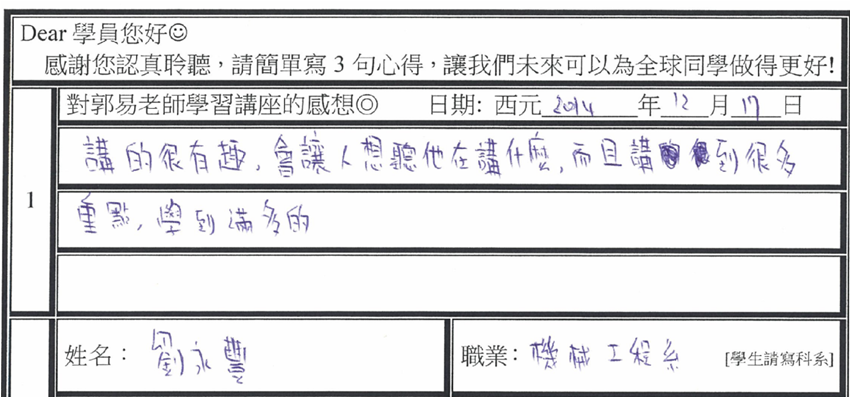 Dear 學員您好☺
感謝您認真聆聽，請簡單寫 3 句心得，讓我們未來可以為全球同學做得更好!
對郭易老師學習講座的感想◎ 日期: 西元 2014 年 12 月 17 日
講的很有趣, 會讓人想聽他在講什麼, 而且講到很多
1
重點, 學到滿多的
姓名： 劉永豐 職業： 機械工程系 [學生請寫科系]